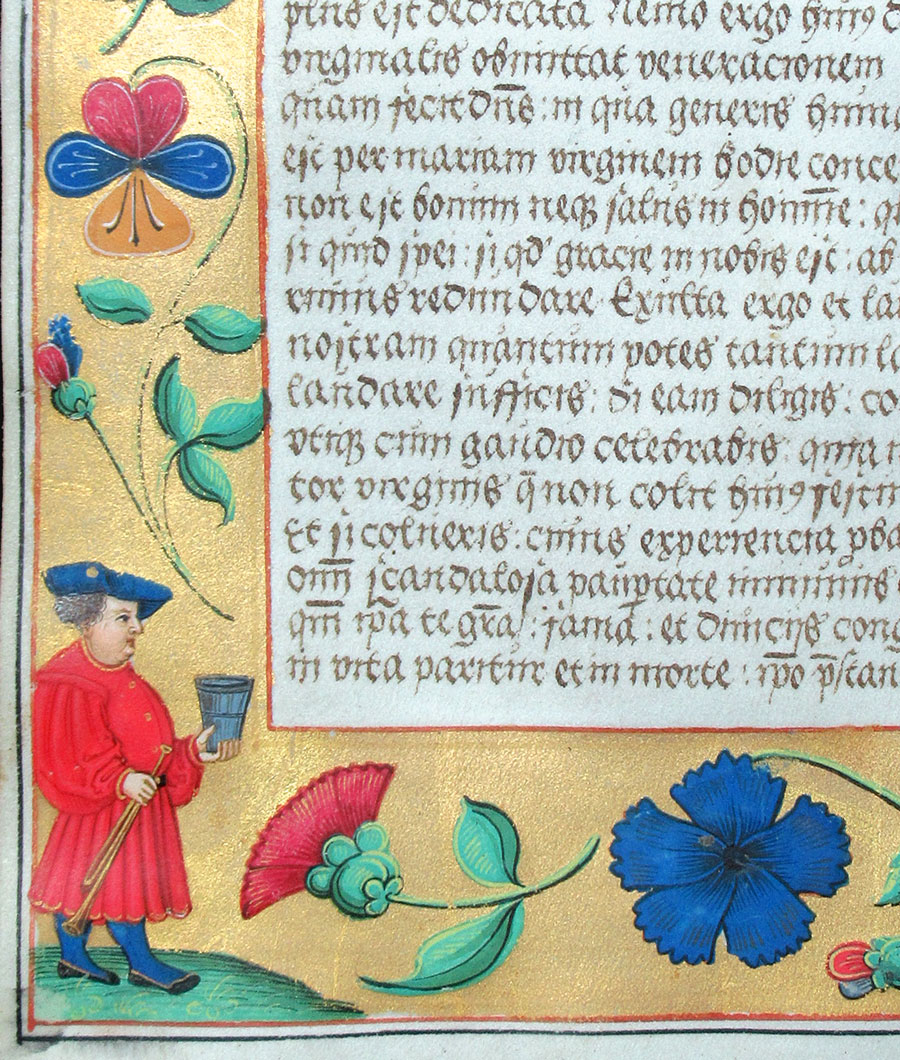 plus est dedicata Nemo ergo huiꝰ d
virginalis obmittat veneracionem
quam fecit dn̄s : in qua generis hum
est per mariam virginem hodie conce
non est bonum neqꝫ salus in homīne : q
si quid spei : si qd' gracie in nobis est : ab
redundare Exulta ergo et lau
nostram quantum potes tantum la
laudare sufficis : Si eam diligis : co
vtiqꝫ cum gaudio celebrabis : quia n
tor virginis q̄ non colit huiꝰ festi
Et si colueris : cuius experiencia ꝓba
om̄i scandalosa paup̱tate
qm̄ ip̄a te gr̄a : fama : et diuicijs cong
in vita paritur et in morte : ip̄o p̄stan